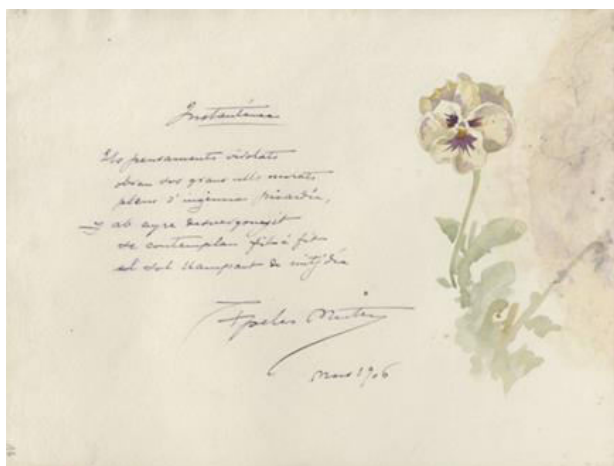 Instantánea
Els pensaments virolats
obran sos grans ulls morats
plens d' ingenua picardía,
y ab ayre desvergonyit
se contemplan fit á fit
el sol llampant de mitj-día
Apeles Mestres
Mars 1906